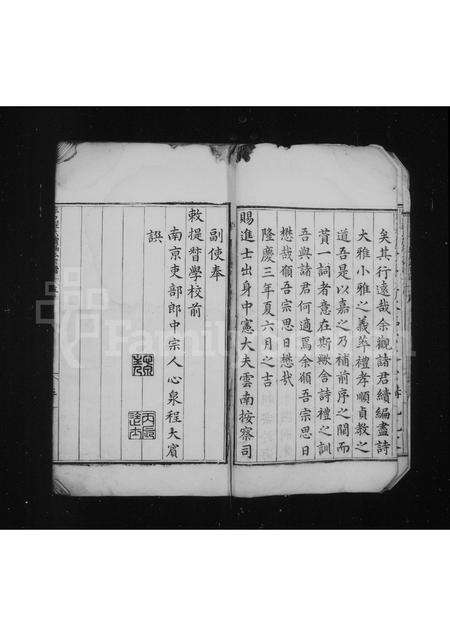 矣其行遠哉余觀諸君續編盡詩
大雅小雅之義葬禮孝順貞教之
道吾是以嘉之乃補前序之闕而
贊一詞者意在斯歟舍詩禮之訓
吾與諸君何適焉余嶺吾宗思日
懋哉嶺吾宗思日懋哉
隆慶三年夏六月之吉
賜進士出身中憲大夫雲南按察司
副使奉
敕提督學校前
南京吏部郎中宗人心泉程大賓
譔